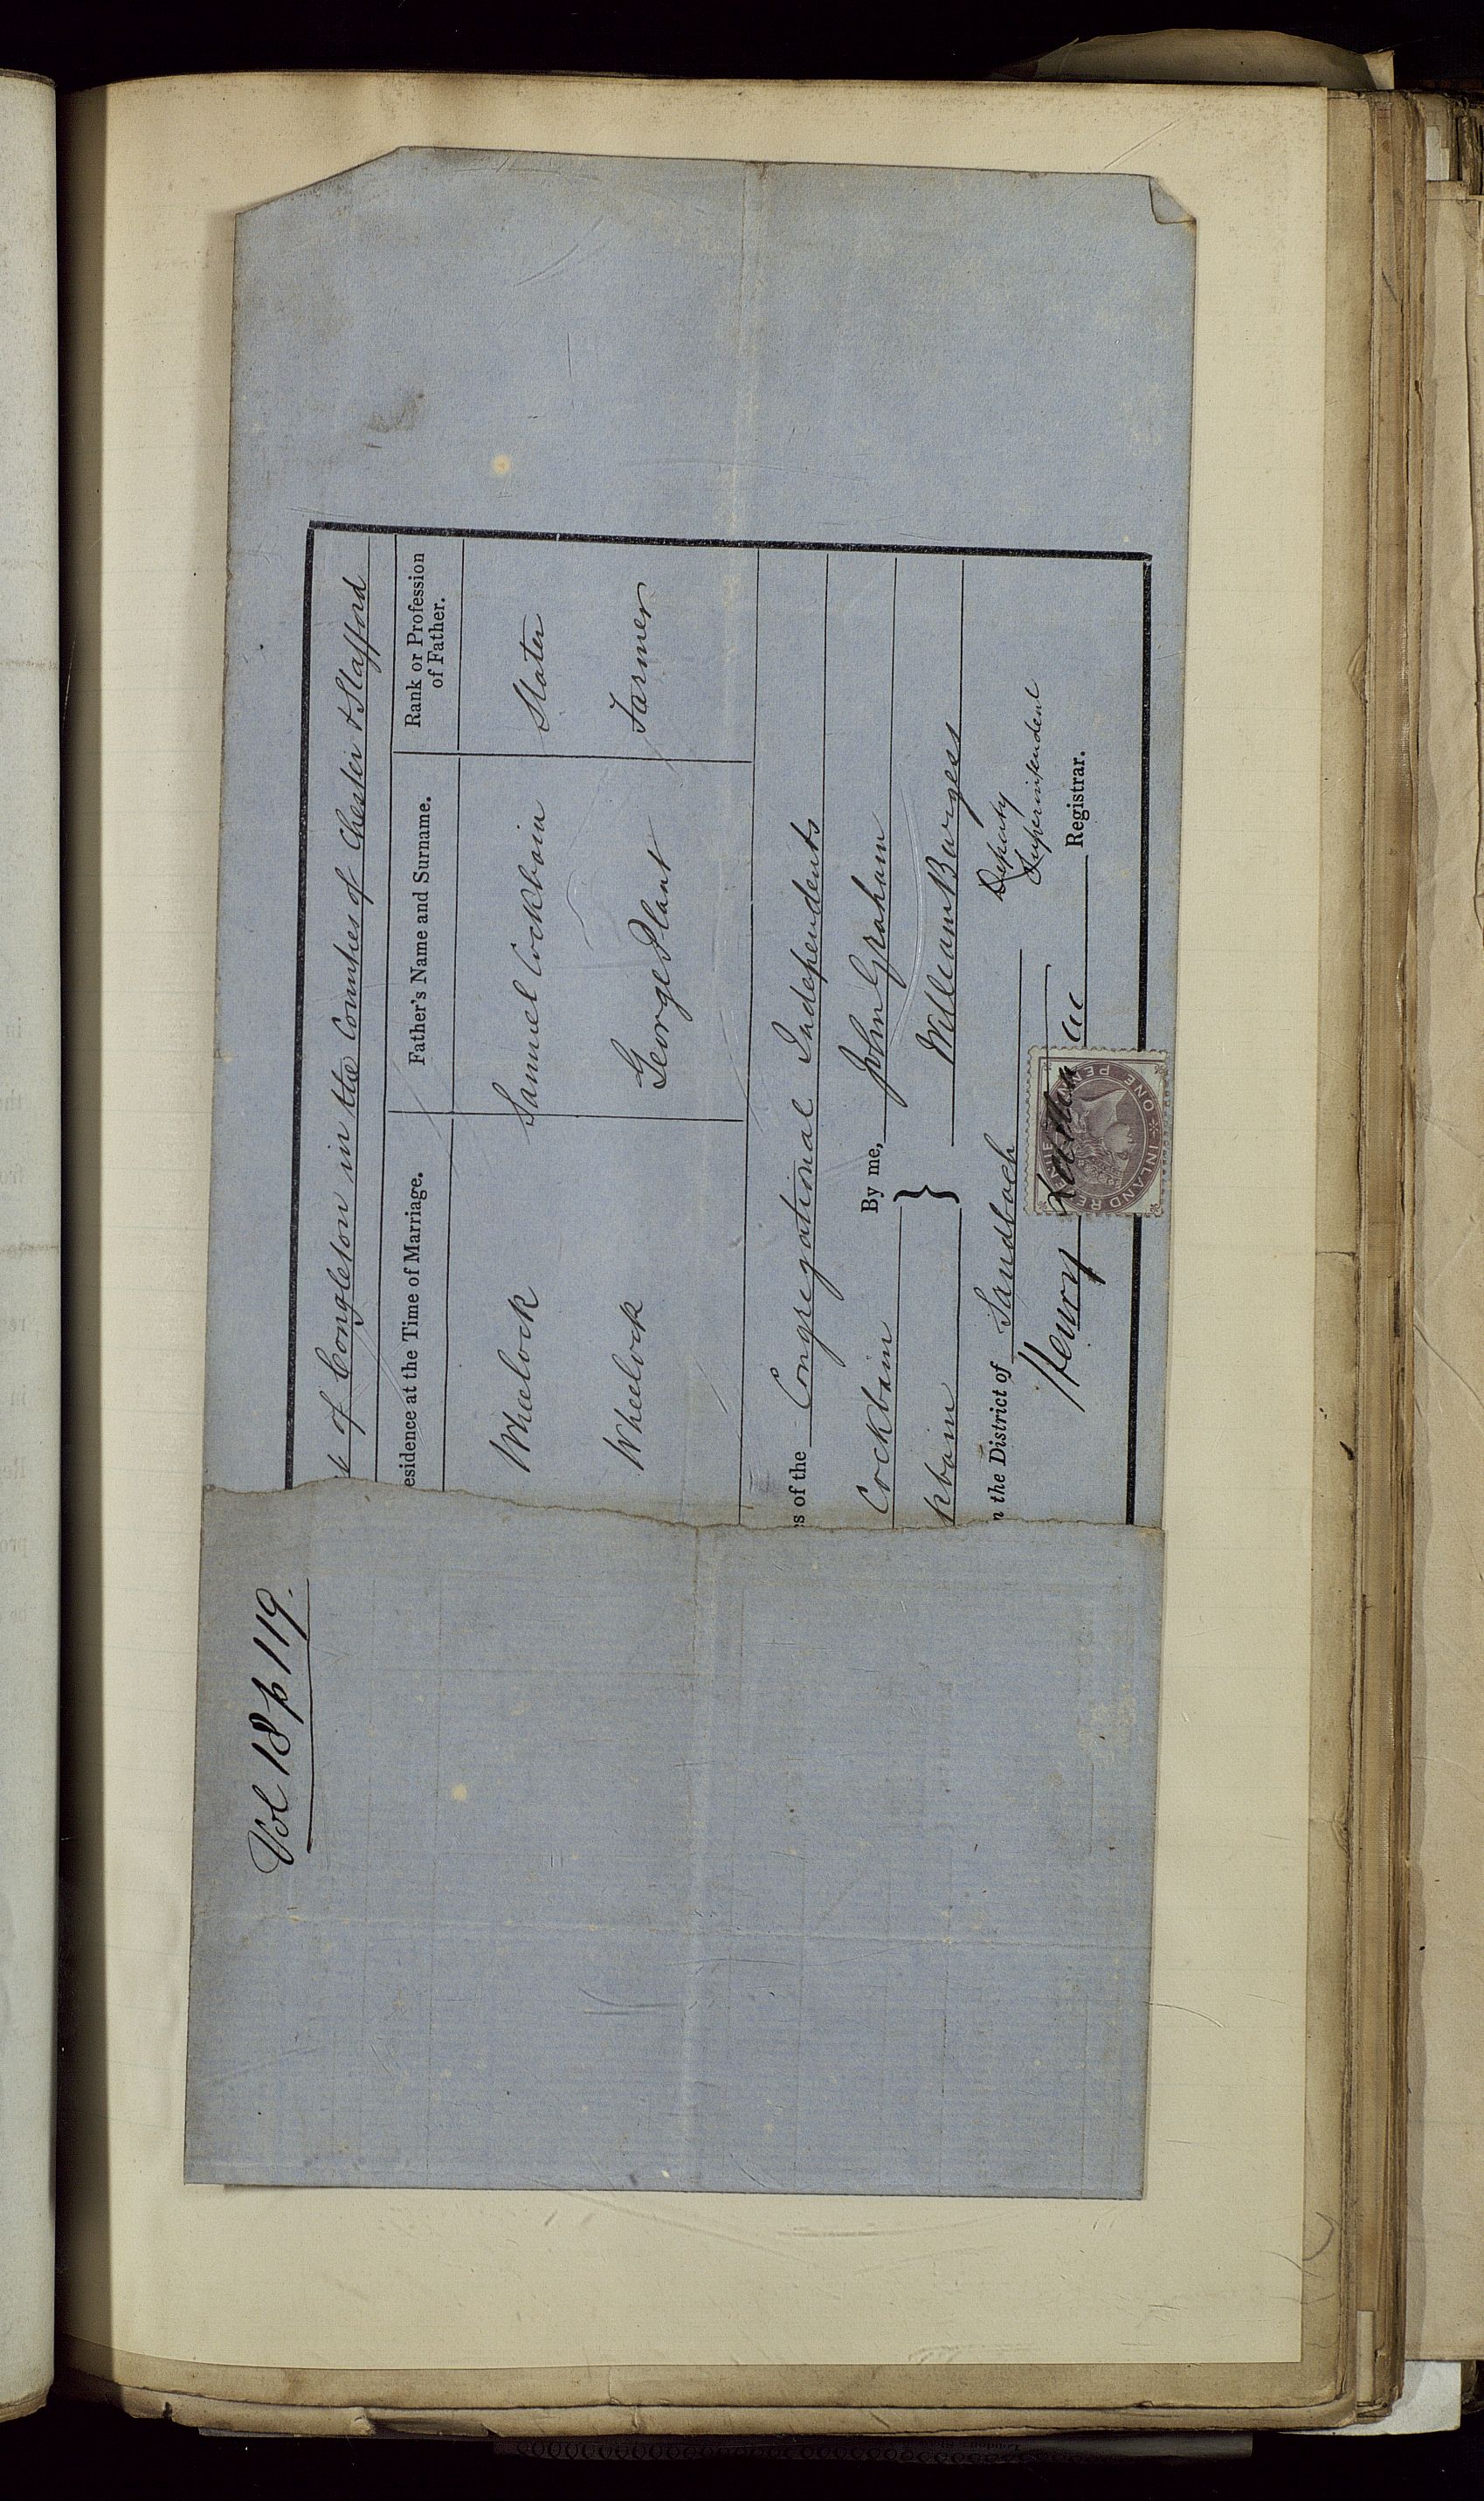 Vol 18 p 119.
of Congleton in the Counties of Chester & Stafford
esidence at the Time of Marriage.
Father's Name and Surname.
Rank or Profession
of Father.
Wheelock
Samuel Cockbain
Slater
Wheelock
George Plant
Farmer
s of the Congregational Independents
Cockbain
By me, John Graham
kbain
William Burgess
n the District of Sandbach
Deputy
Superintendent
Henry
Registrar.
INLAND REVENUE
ONE PENNY